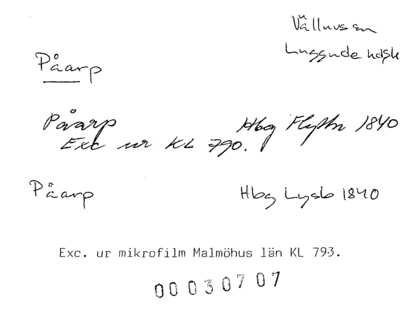 Vällinvs sn
Luggude hdsk
Påarp
Påarp Hbg Flyttn 1840
Exc ur KL 790.
Påarp Hbg Lysb 1840
Exc. ur mikrofilm Malmöhus län KL 793.
00030707